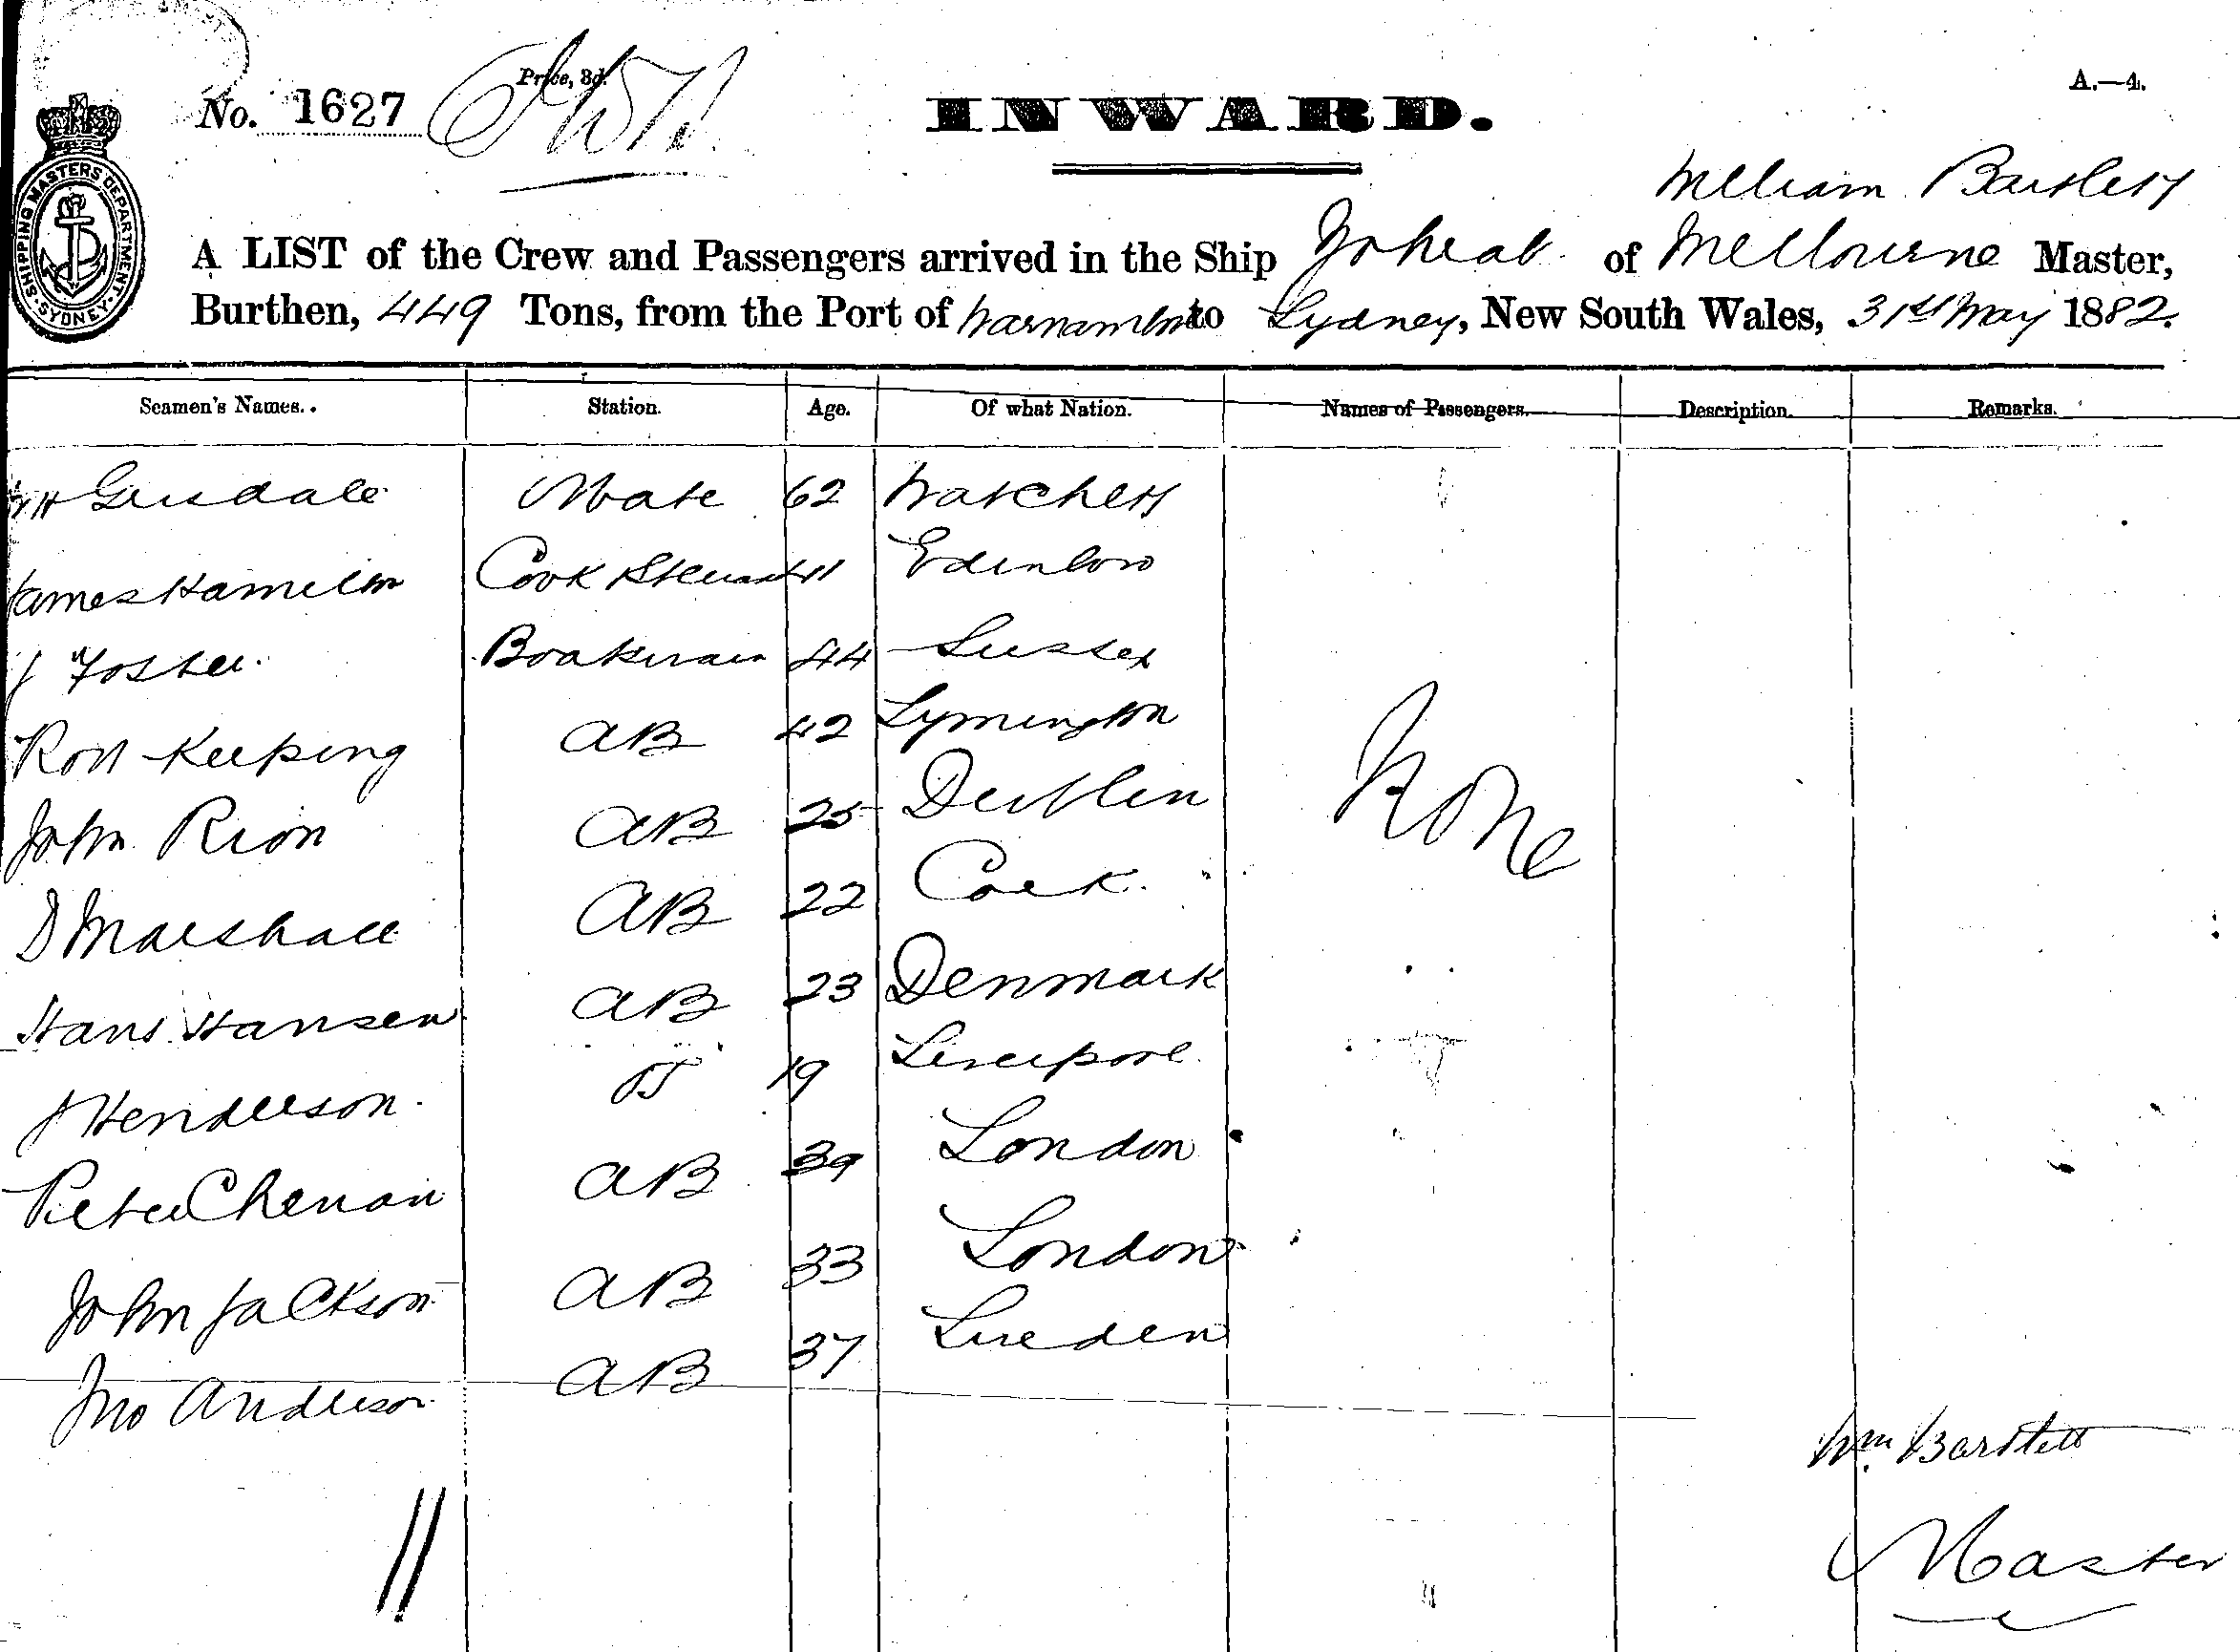 No. 1627
Price, 3d.
INWARD.
A.—4.
SHIPPING MASTERS DEPARTMENT SYDNEY
William Bartlett
A LIST of the Crew and Passengers arrived in the Ship of Melbourne Master,
Burthen, 449 Tons, from the Port of to Sydney, New South Wales, 31st May 1882.
Seamen's Names. Station. Age. Of what Nation. Names of Passengers. Description. Remarks.
Mate 62 Watchett
James Hamilton Cook Steward 41 Edinboro
J Foster Boatswain 44 Sussex
Robt Keeping AB 42 Lymington
John Rion AB 25 Dublin
None
D Marshall AB 22 Cork
Hans Hansen AB 23 Denmark
J Henderson OS 19 Liverpool
Peter AB 39 London
John Jackson AB 33 London
Jno Anderson AB 37 Sweden
Wm. Bartlett
Master
11